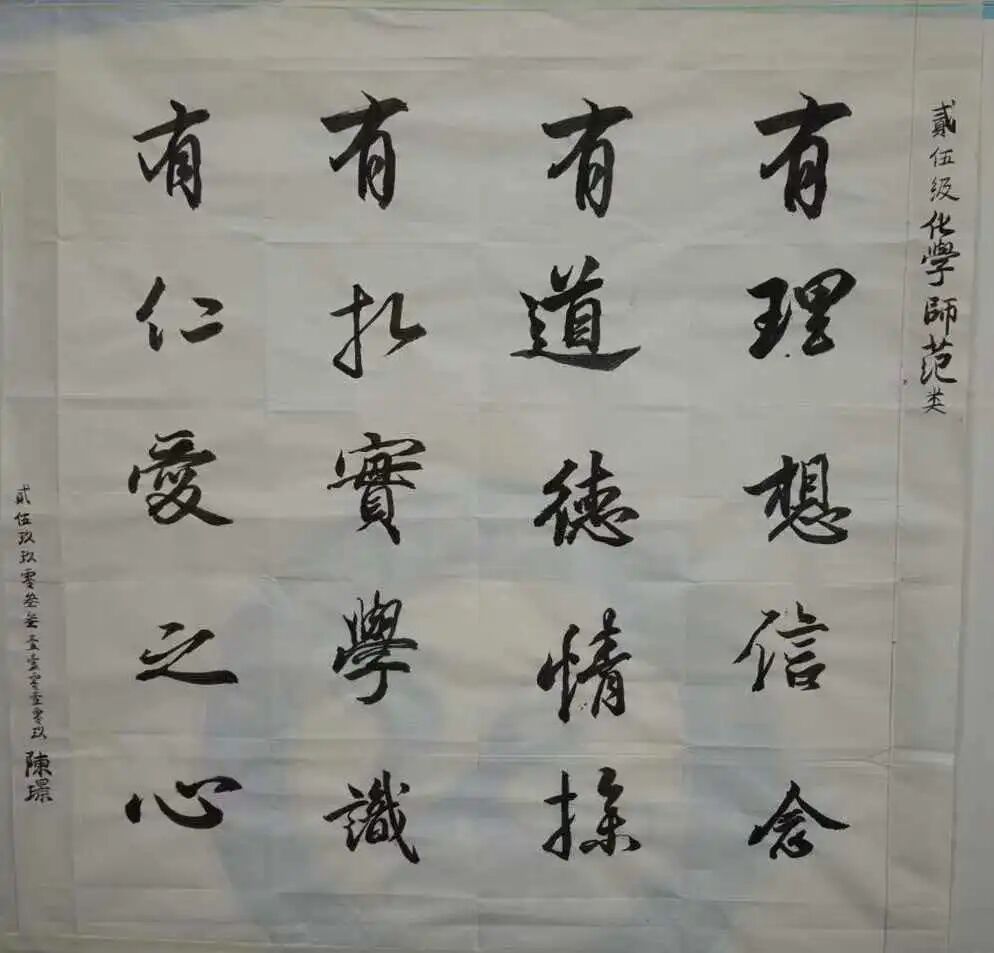 貳伍级化學師范类
有理想信念
有道德情操
有扎實學識
有仁愛之心
貳伍玖玖零叁叁壹壹零壹零玖陳璟